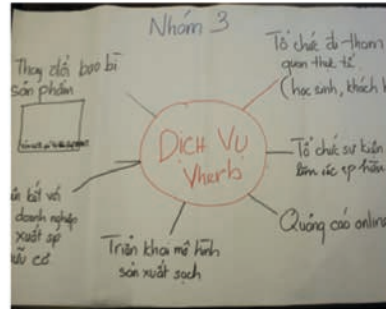 Nhóm 3
Thay đổi bao bì
sản phẩm
Tổ chức đi tham
quan thực tế.
(học sinh, khách h
DỊCH VỤ
Vherb
Tổ chức sự kiện
Quảng cáo online
Triển khai mô hình
sản xuất sạch
ắn kết với
doanh nghiệp
xuất sp
ữu cơ